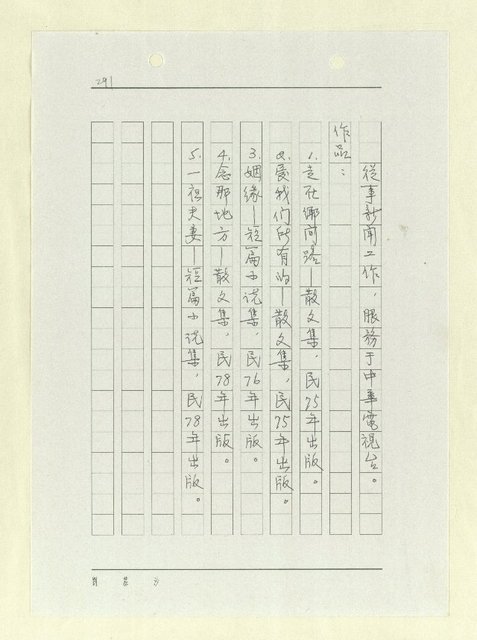 291
從事新聞工作，服務于中華電視台。
作品：
1.走在鄉间路—散文集，民75年出版。
2.爱我们所有的—散文集，民75年出版。
3.姻缘—短篇小说集，民76年出版。
4.念那地方—散文集，民78年出版。
5.一襪夫妻—短篇小说集，民78年出版。